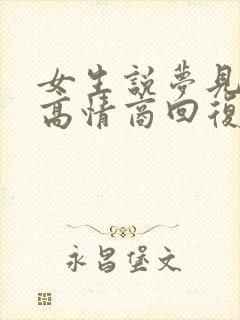 女生說夢見
高情商回復
永昌堡文